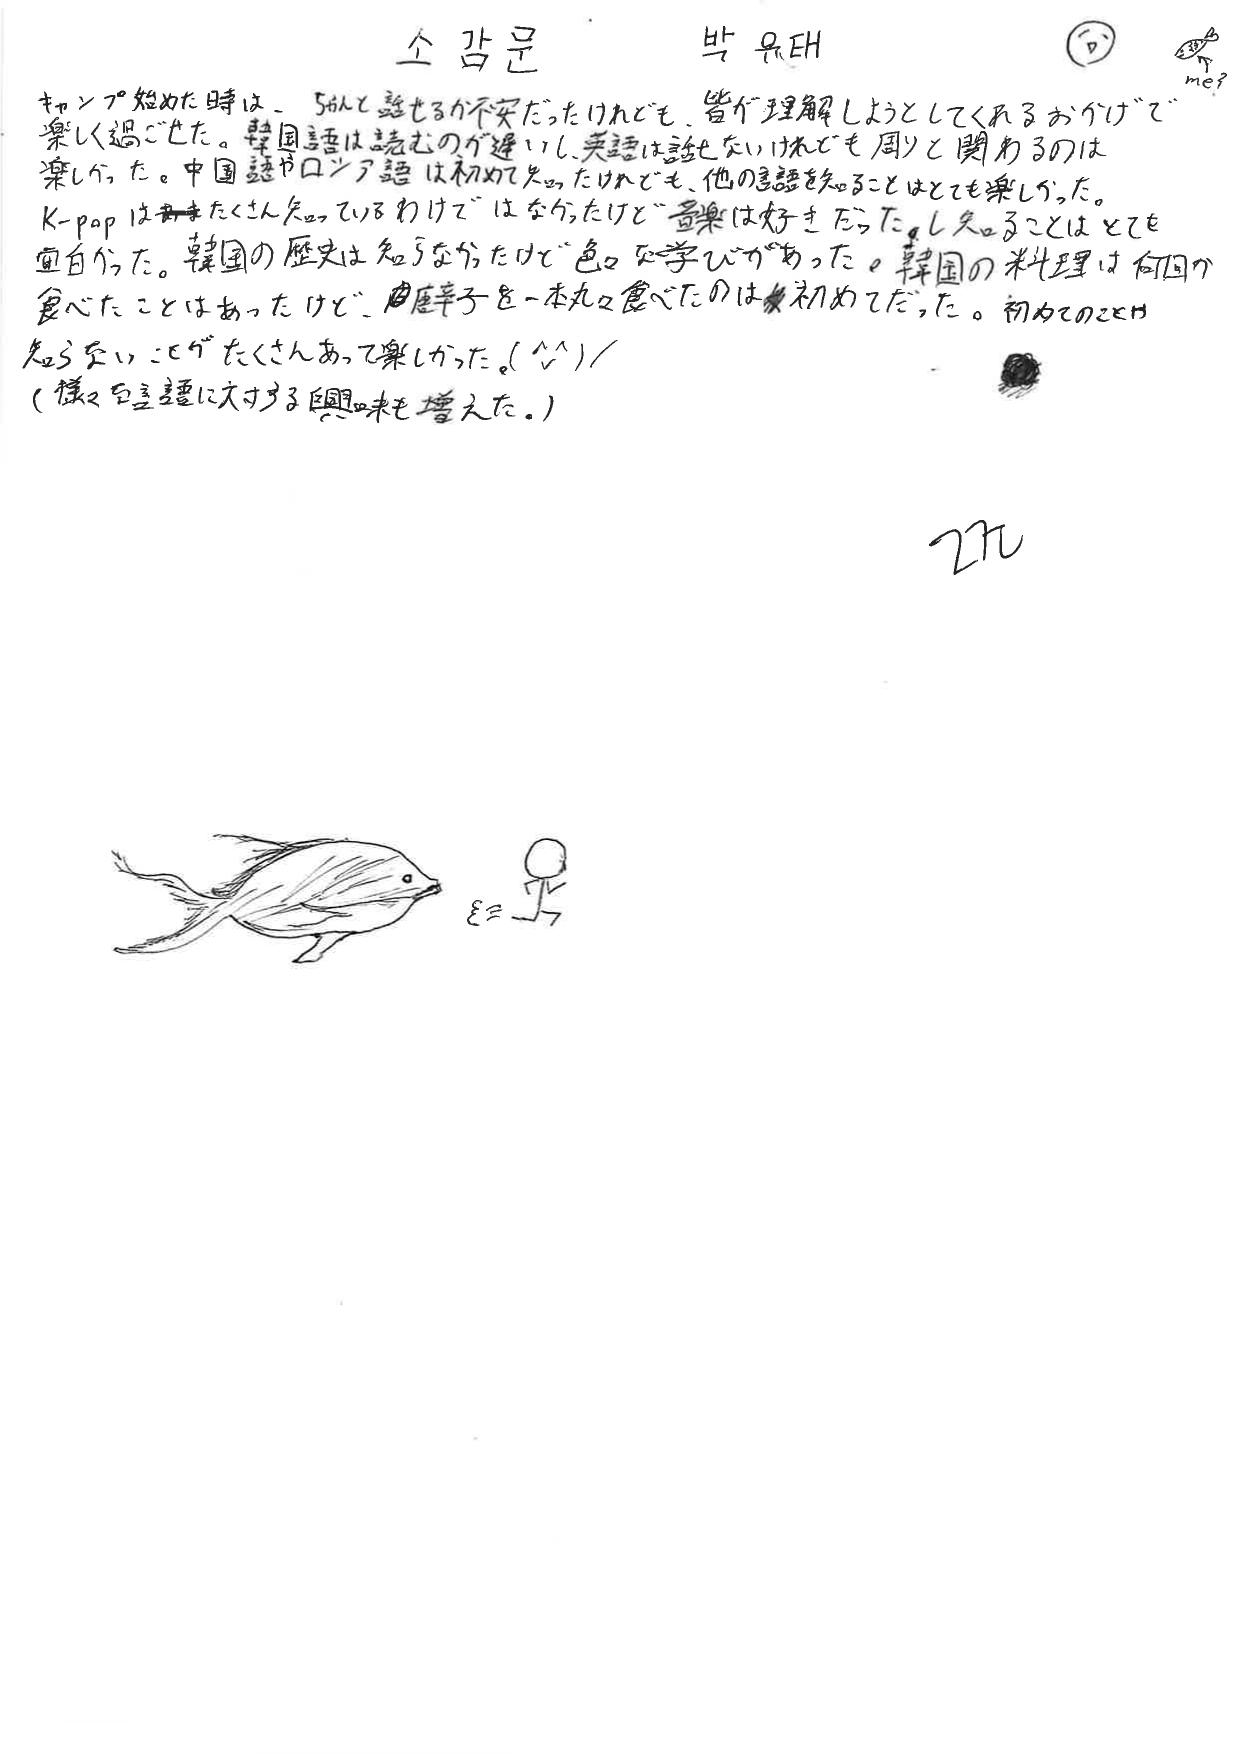 소감문 박유태
me?
キャンプ始めた時は、ちゃんと話せるか不安だったけれども、皆が理解しようとしてくれるおかげで
楽しく過ごせた。韓国語は読むのが遅いし、英語は話せないけれども周りと関わるのは
楽しかった。中国語やロシア語は初めて知ったけれども、他の言語を知ることはとても楽しかった。
K-popはたくさん知っているわけではなかったけど音楽は好きだったし知ることはとても
面白かった。韓国の歴史は知らなかったけど色々な学びがあった。韓国の料理は何回か
食べたことはあったけど、唐辛子を一本丸々食べたのは初めてだった。初めてのことや
知らないことがたくさんあって楽しかった。(^v^)/
(様々な言語に対する興味も増えた。)